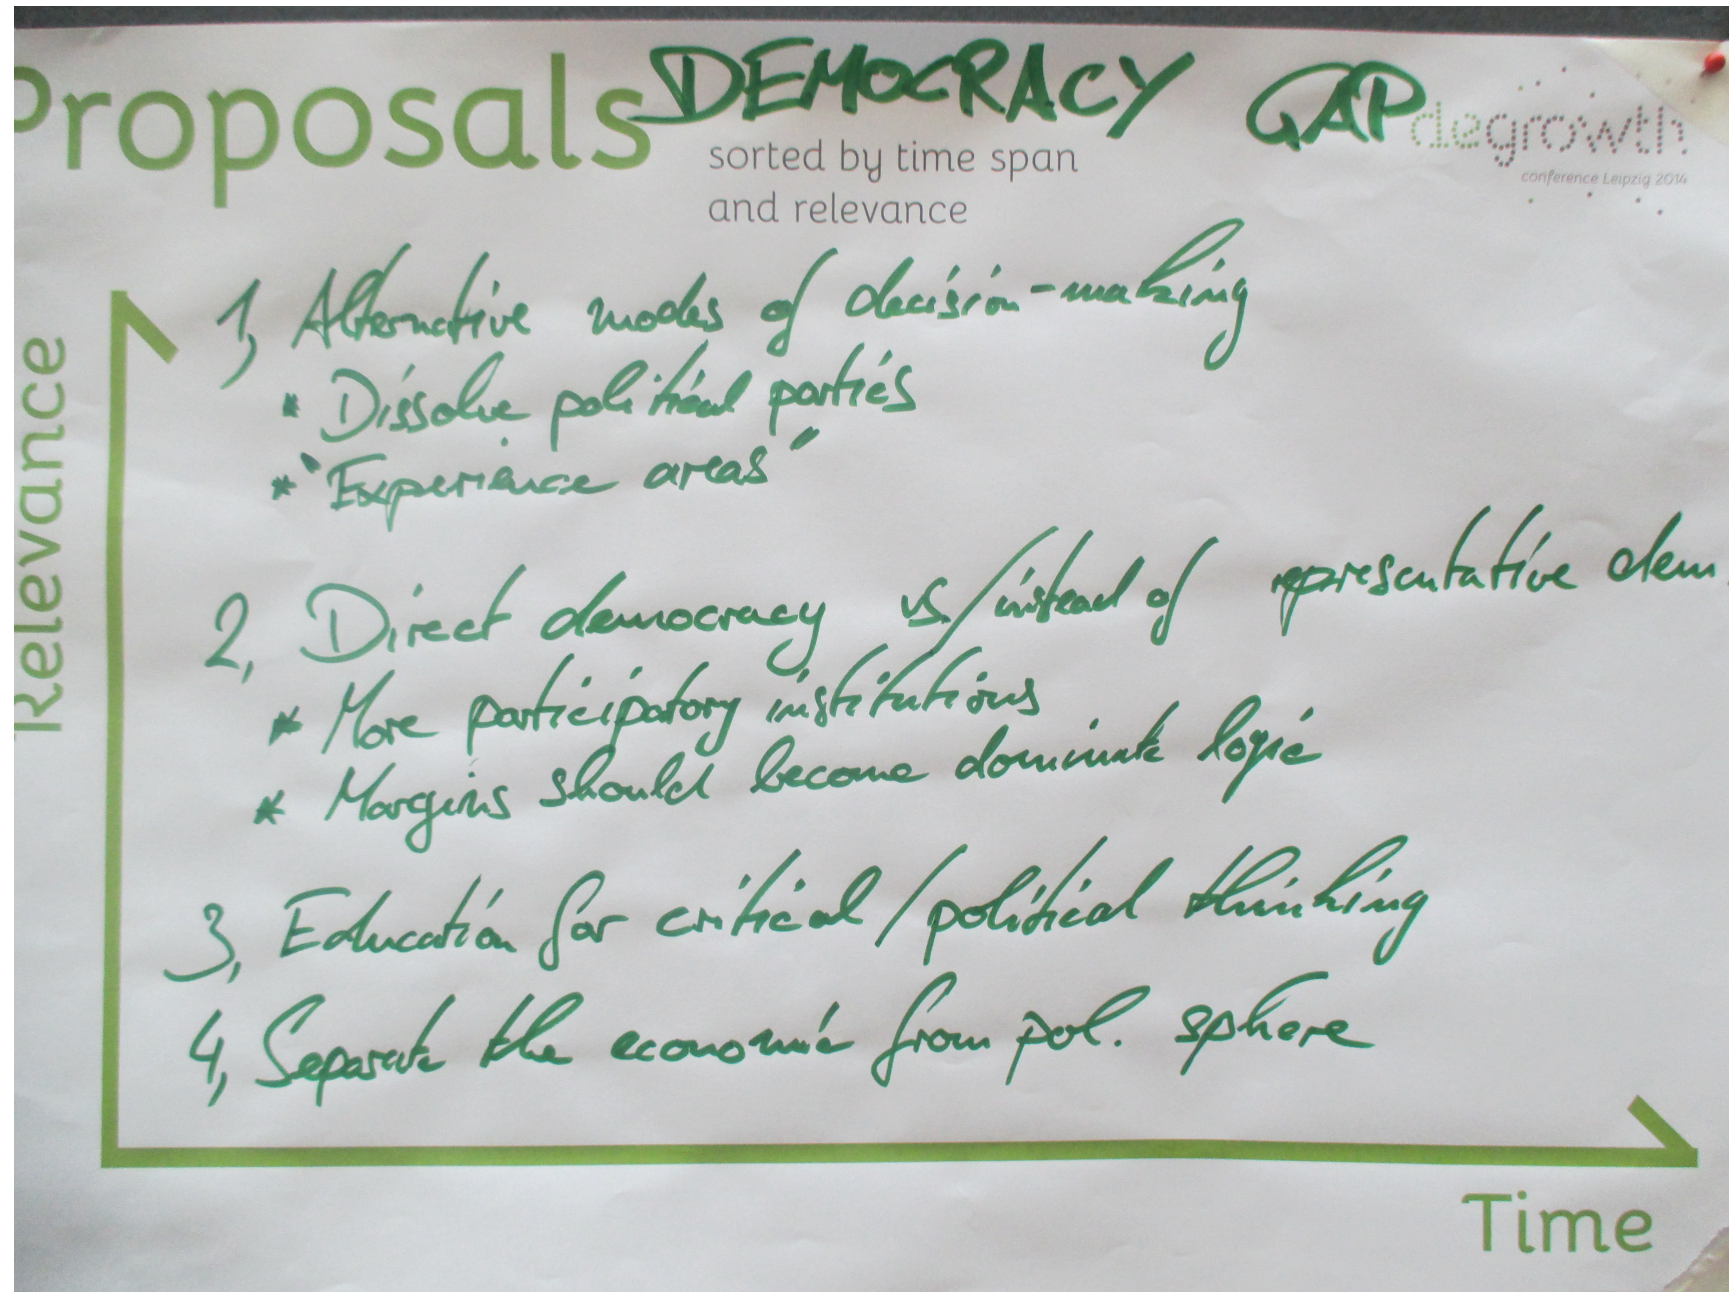 Proposals DEMOCRACY GAP
degrowth
conference Leipzig 2014
sorted by time span
and relevance
Relevance
1, Alternative modes of decision-making
* Dissolve political parties
* "Experience areas"
2, Direct democracy vs./instead of representative dem.
* More participatory institutions
* Margins should become dominate logic
3, Education for critical/political thinking
4, Separate the economic from pol. sphere
Time